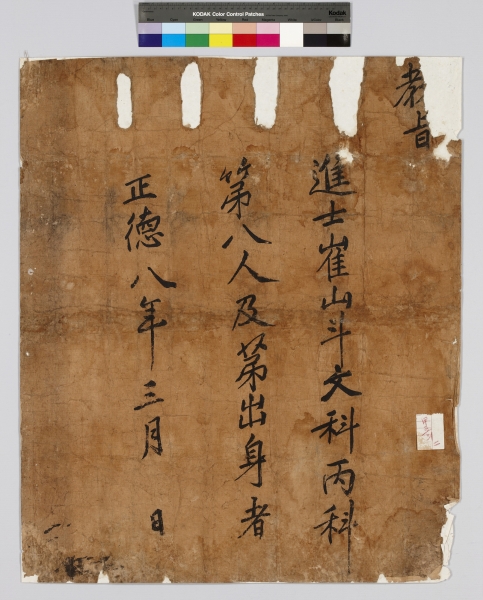 KODAK Color Control Patches
Kodak
教旨
進士崔山斗文科丙科
第八人及第出身者
正德八年三月 日